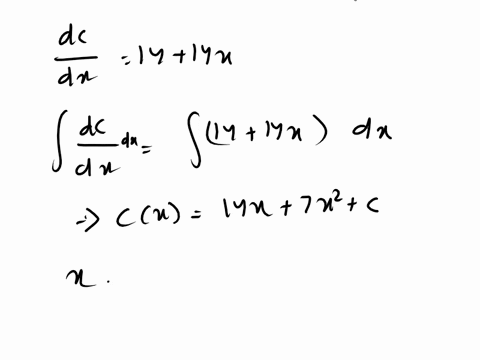 dc/dx = 14 + 14x
∫ dc/dx dx = ∫ (14 + 14x) dx
→ c(x) = 14x + 7x² + c
x .